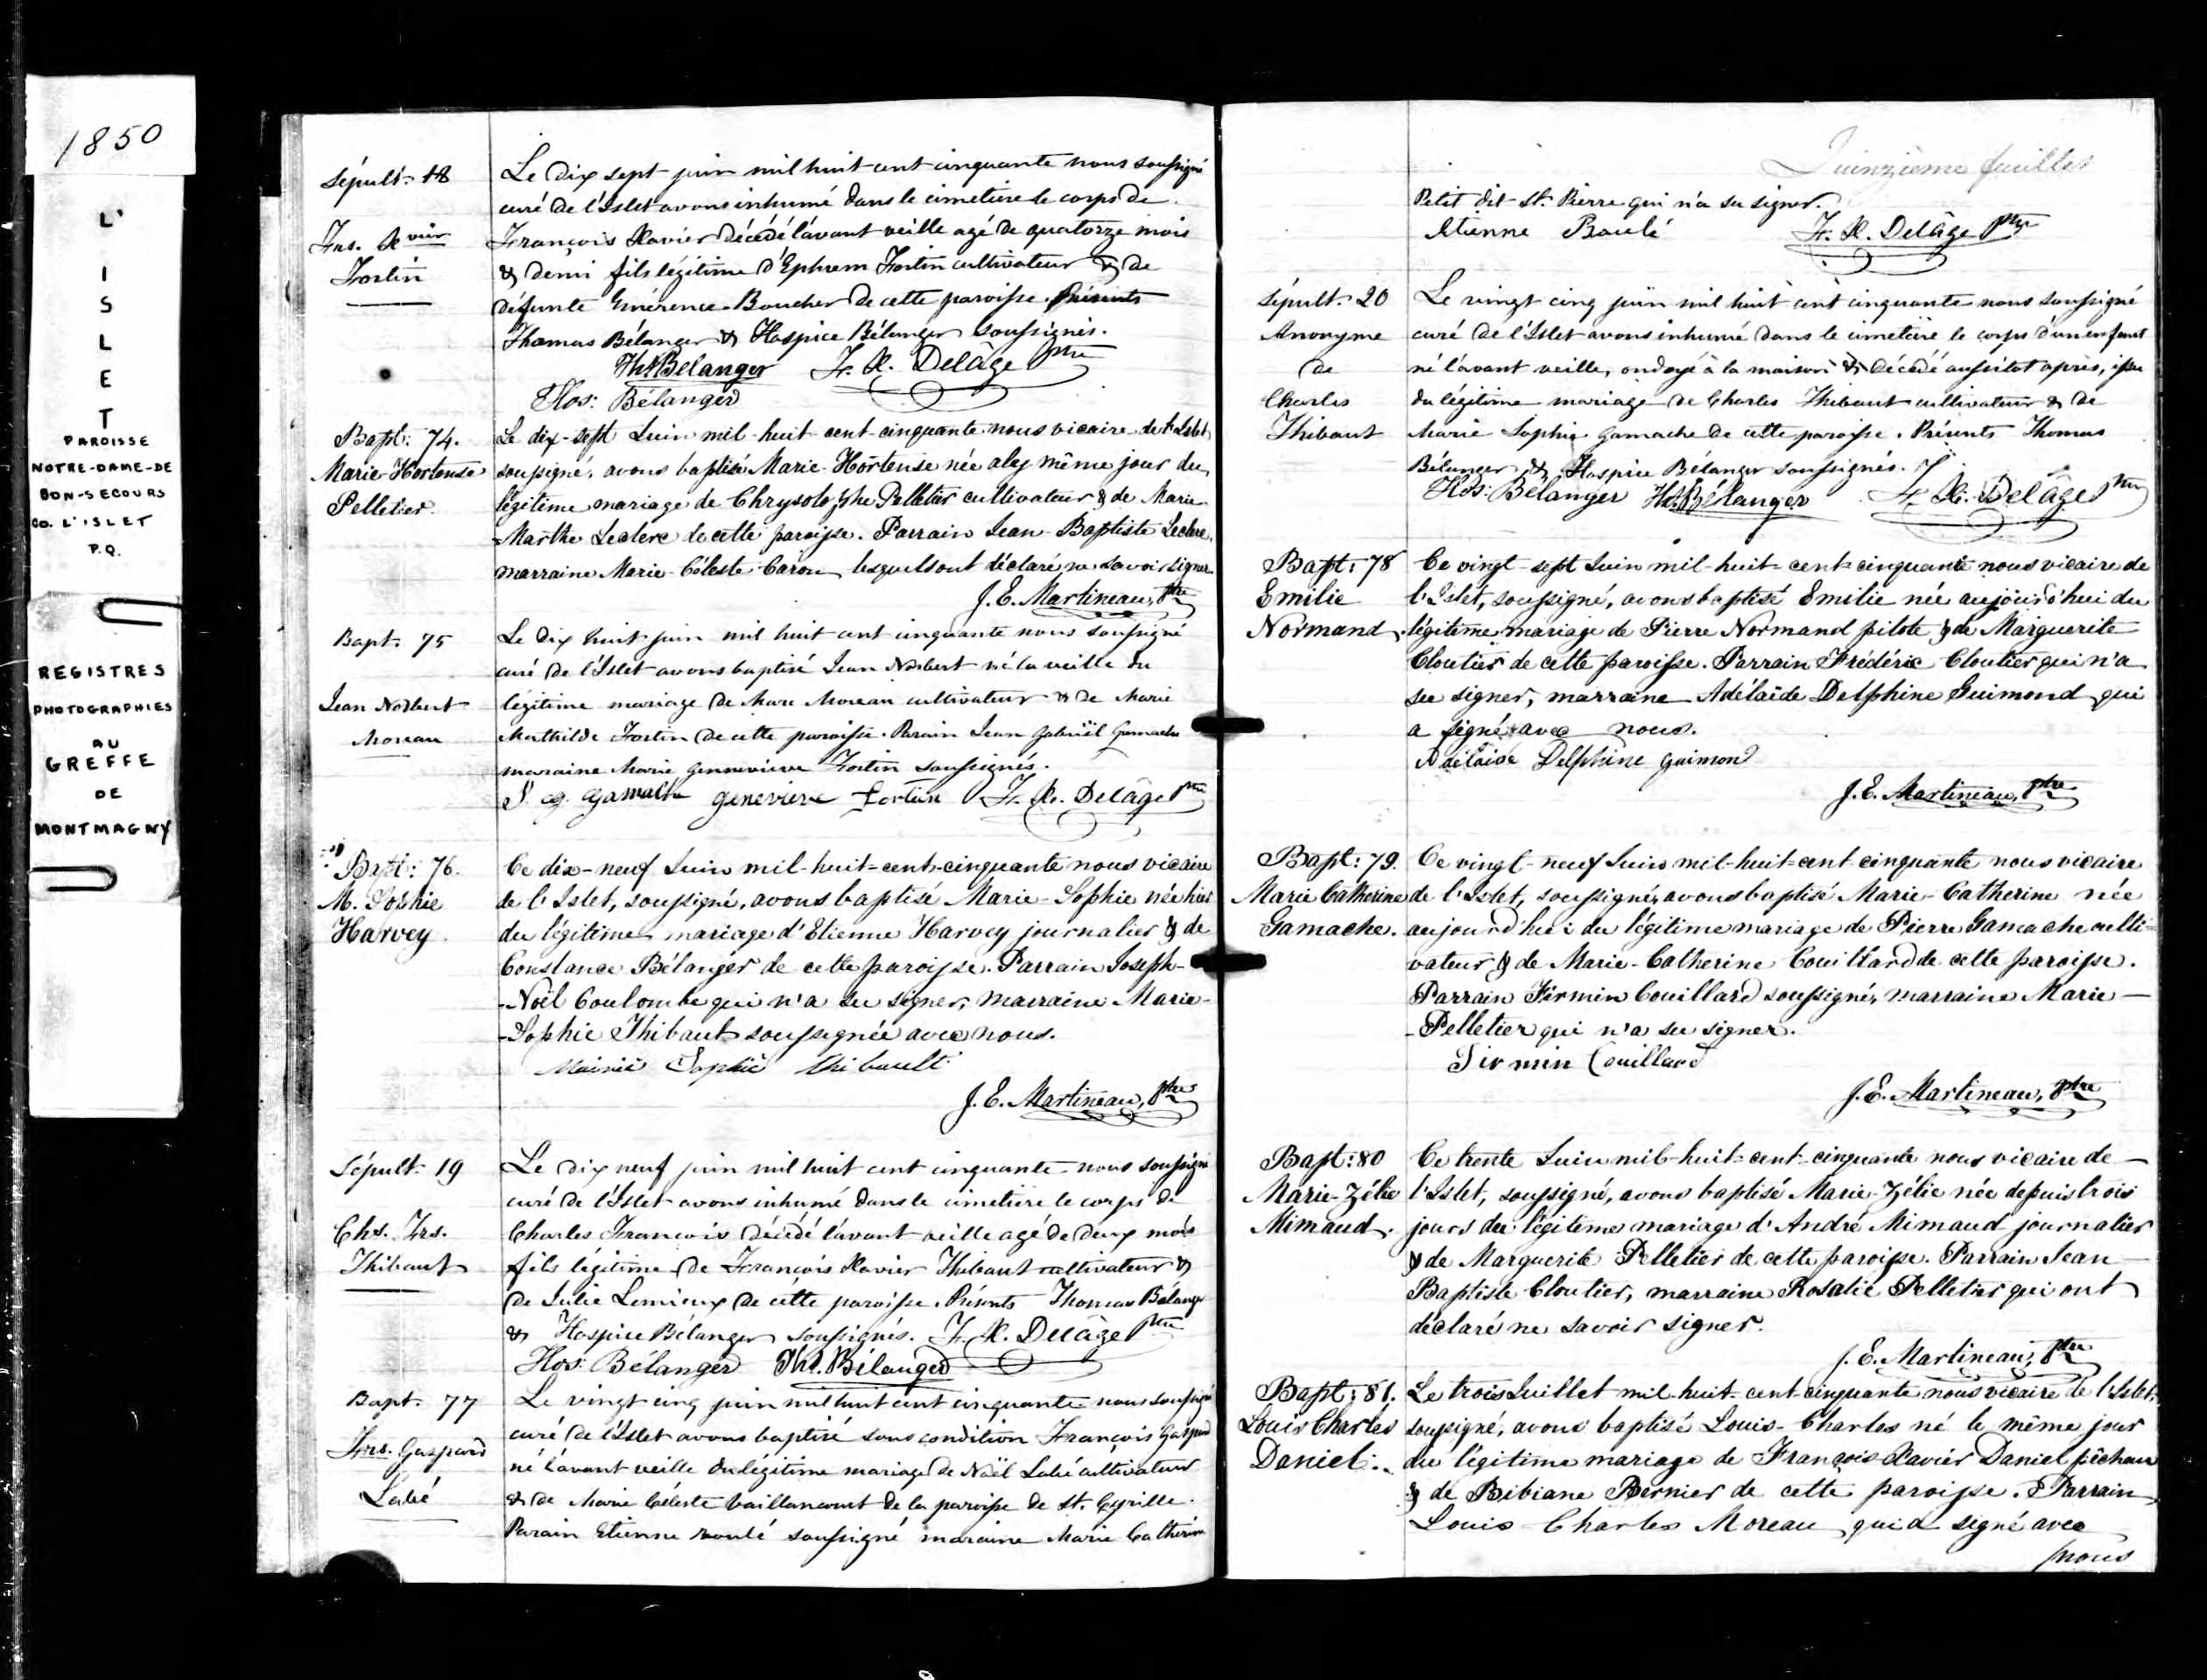 1850
L'
I
S
L
E
T
PAROISSE
NOTRE-DAME-DE
BON-SECOURS
Co. L'ISLET
P.Q.
REGISTRES
PHOTOGRAPHIES
AU
GREFFE
DE
MONTMAGNY
Sépult: 18
Frs. Xvier
Fortin
Le dix sept juin mil huit cent cinquante nous soussigné
curé de l'Islet avons inhumé dans le cimetière le corps de
François Xavier décédé l'avant veille agé de quatorze mois
& demi fils légitime d'Ephrem Fortin cultivateur & de
défunte Emérence Boucher de cette paroisse. Présents
Thomas Bélanger & Hospice Bélanger soussignés.
Ths Belanger Fr. X. Delâge Ptre
Hos: Bélanger
Bapt: 74.
Marie-Hortense
Pelletier
Le dix-sept Juin mil-huit-cent-cinquante nous vicaire de l'Islet,
soussigné, avons baptisé Marie-Hortense née le même jour du
légitime mariage de Chrysolophe Pelletier cultivateur & de Marie
Marthe Leclerc de cette paroisse. Parrain Jean-Baptiste Leclerc,
marraine Marie-Céleste Caron lesquels ont déclaré ne savoir signer.
J.E. Martineau, Ptre
Bapt: 75
Jean Norbert
Moreau
Le dix huit juin mil huit cent cinquante nous soussigné
curé de l'Islet avons baptisé Jean Norbert né la veille du
légitime mariage de Marc Moreau cultivateur & de Marie
Mathilde Fortin de cette paroisse. Parain Jean Gabriël Gamache
maraine Marie Gennevieve Fortin soussignés.
J. G. Gamache Genevieve Fortin Fr. X. Delâge Ptre
Bapt: 76.
M. Sophie
Harvey
Ce dix-neuf Juin mil-huit-cent-cinquante nous vicaire
de l'Islet, soussigné, avons baptisé Marie-Sophie née hier
du légitime mariage d'Etienne Harvey journalier & de
Constance Bélanger de cette paroisse. Parrain Joseph-
-Noël Coulombe qui n'a su signer, marraine Marie-
-Sophie Thibault soussignée avec nous.
Marie Sophie Thibault
J.E. Martineau, Ptre
Sépult: 19
Chs. Frs.
Thibaut
Le dix neuf juin mil huit cent cinquante nous soussigné
curé de l'Islet avons inhumé dans le cimetière le corps de
Charles François décédé l'avant veille agé de deux mois
fils légitime de François Xavier Thibaut cultivateur &
de Julie Lemieux de cette paroisse. Présents Thomas Bélanger
& Hospice Bélanger soussignés. Fr. X. Delâge Ptre
Hos: Bélanger Ths. Bélanger
Bapt: 77
Frs. Gaspard
Labé
Le vingt cinq juin mil huit cent cinquante nous soussigné
curé de l'Islet avons baptisé sous condition François Gaspard
né l'avant veille du légitime mariage de Naël Labé cultivateur
& de Marie Céleste Vaillancourt de la paroisse de St. Cyrille.
Parain Etienne soussigné maraine Marie Catherine
Quinzième feuillet
Petit dit St. Pierre qui n'a su signer.
Etienne Fr. X. Delâge Ptre
Sépult: 20
Anonyme
de
Charles
Thibaut
Le vingt cinq juin mil huit cent cinquante nous soussigné
curé de l'Islet avons inhumé dans le cimetière le corps d'un enfant
né l'avant veille, ondoyé à la maison & décédé aussitot après, issu
du légitime mariage de Charles Thibaut cultivateur & de
Marie Sophie Gamache de cette paroisse. Présents Thomas
Bélanger & Hospice Bélanger soussignés.
Hos: Bélanger Ths. Bélanger Fr. X. Delâge Ptre
Bapt: 78
Emilie
Normand.
Ce vingt-sept Juin mil-huit-cent-cinquante nous vicaire de
l'Islet, soussigné, avons baptisé Emilie née aujourd'hui du
légitime mariage de Pierre Normand pilote & de Marguerite
Cloutier de cette paroisse. Parrain Frédéric Cloutier qui n'a
su signer, marraine Adélaïde Delphine Guimond qui
a signé avec nous.
Adélaïde Delphine Guimond
J.E. Martineau, Ptre
Bapt: 79.
Marie Catherine
Gamache.
Ce vingt-neuf Juin mil-huit-cent-cinquante nous vicaire
de l'Islet, soussigné, avons baptisé Marie-Catherine née
aujourd'hui du légitime mariage de Pierre Gamache culti-
vateur & de Marie-Catherine Couillard de cette paroisse.
Parrain Firmin Couillard soussigné, marraine Marie-
-Pelletier qui n'a su signer.
Firmin Couillard
J.E. Martineau, Ptre
Bapt: 80
Marie-Zélie
Mimaud.
Ce trente Juin mil-huit-cent-cinquante nous vicaire de
l'Islet, soussigné, avons baptisé Marie-Zélie née depuis trois
jours du légitime mariage d'André Mimaud journalier
& de Marguerite Pelletier de cette paroisse. Parrain Jean
Baptiste Cloutier, marraine Rosalie Pelletier qui ont
déclaré ne savoir signer.
J.E. Martineau, Ptre
Bapt: 81.
Louis Charles
Daniel.
Le trois Juillet mil-huit-cent-cinquante nous vicaire de l'Islet,
soussigné, avons baptisé Louis-Charles né le même jour
du légitime mariage de François-Xavier Daniel pêcheur
& de Bibiane Bernier de cette paroisse. Parrain
Louis-Charles Moreau qui a signé avec
nous